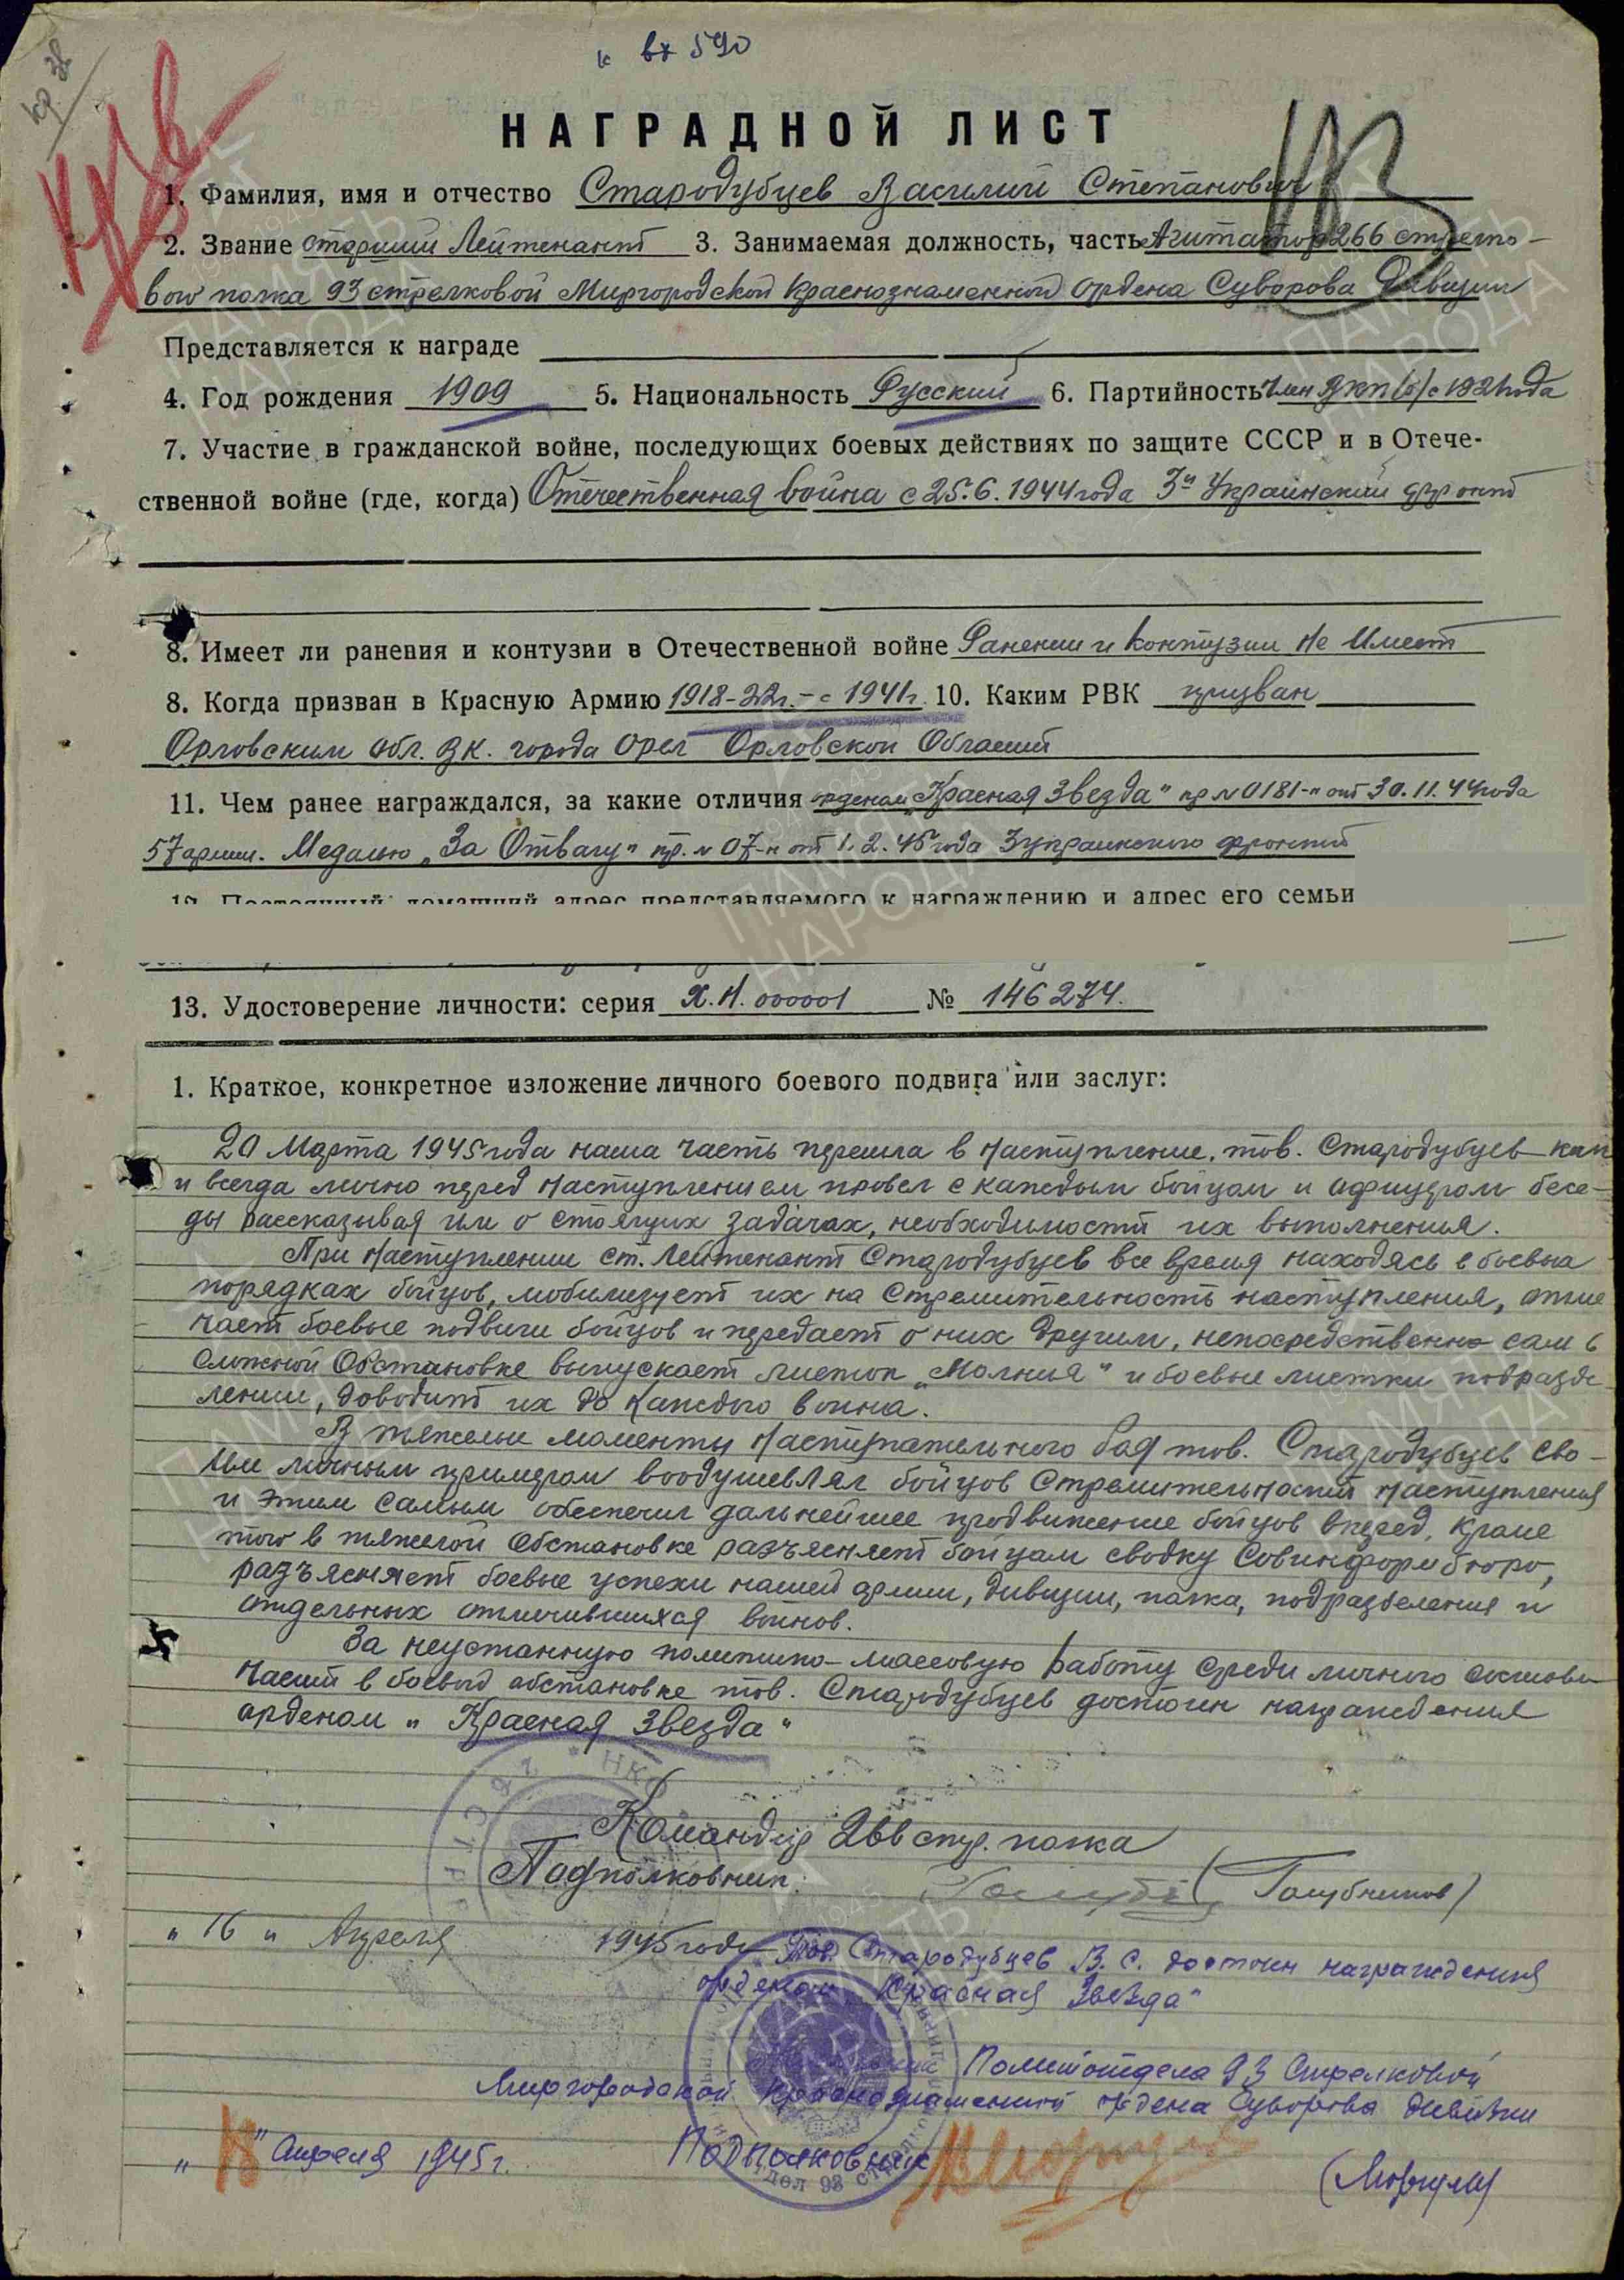 к вх 590
НАГРАДНОЙ ЛИСТ
1. Фамилия, имя и отчество Стародубцев Василий Степанович
2. Звание старший Лейтенант 3. Занимаемая должность, часть Агитатор 266 стрелко-
вого полка 93 стрелковой Миргородской Краснознаменной ордена Суворова Дивизии
Представляется к награде
4. Год рождения 1909 5. Национальность Русский 6. Партийность член ВКП(б) с
7. Участие в гражданской войне, последующих боевых действиях по защите СССР и в Отече-
ственной войне (где, когда) Отечественная война с 25.6.1944 года 3й Украинский фронт
8. Имеет ли ранения и контузии в Отечественной войне Ранении и Контузии не Имеет
8. Когда призван в Красную Армию 1918-22г. - с 1941г. 10. Каким РВК призван
Орловским обл. ВК. города Орел Орловской Области
11. Чем ранее награждался, за какие отличия орденом „Красная Звезда" пр № 0181-н от 30.11.44 года
57 армии. Медалью „За Отвагу" пр. № 07-н от 1.2.45 года 3 украинского фронта
12. Постоянный домашний адрес представляемого к награждению и адрес его семьи
13. Удостоверение личности: серия Х.Н. 000001 № 146274.
1. Краткое, конкретное изложение личного боевого подвига или заслуг:
20 Марта 1945 года наша часть перешла в наступление. тов. Стародубцев как
и всегда лично перед наступлением провел с каждым бойцом и офицером бесе-
ды рассказывая им о стоящих задачах, необходимости их выполнения.
При наступлении ст. Лейтенант Стародубцев все время находясь в боевых
порядках бойцов, мобилизует их на стремительность наступления, отме
чает боевые подвиги бойцов и передает о них другим, непосредственно сам в
сложной Обстановке выпускает листок „Молния" и боевые листки подразде
лении, доводит их до каждого воина.
В тяжелые моменты наступательного боя тов. Стародубцев сво-
им личным примером воодушевлял бойцов стремительности наступления
и этим самым обеспечил дальнейшее продвижение бойцов вперед, кроме
того в тяжелой обстановке разъясняет бойцам сводку Совинформбюро,
разъясняет боевые успехи нашей армии, дивизии, полка, подразделения и
отдельных отличившихся воинов.
За неустанную политико-массовую работу среди личного состава
части в боевой обстановке тов. Стародубцев достоин награждения
орденом „Красная Звезда"
Командир 266 стр. полка
Подполковник: (Голубничов)
„16" Апреля 1945 года Тов. Стародубцев В. С. достоин награждения
орденом „Красная Звезда"
Политотдела 93 Стрелковой
Миргородской Краснознаменной ордена Суворова дивизии
„18" Апреля 1945 г. Подполковник
ПАМЯТЬ НАРОДА